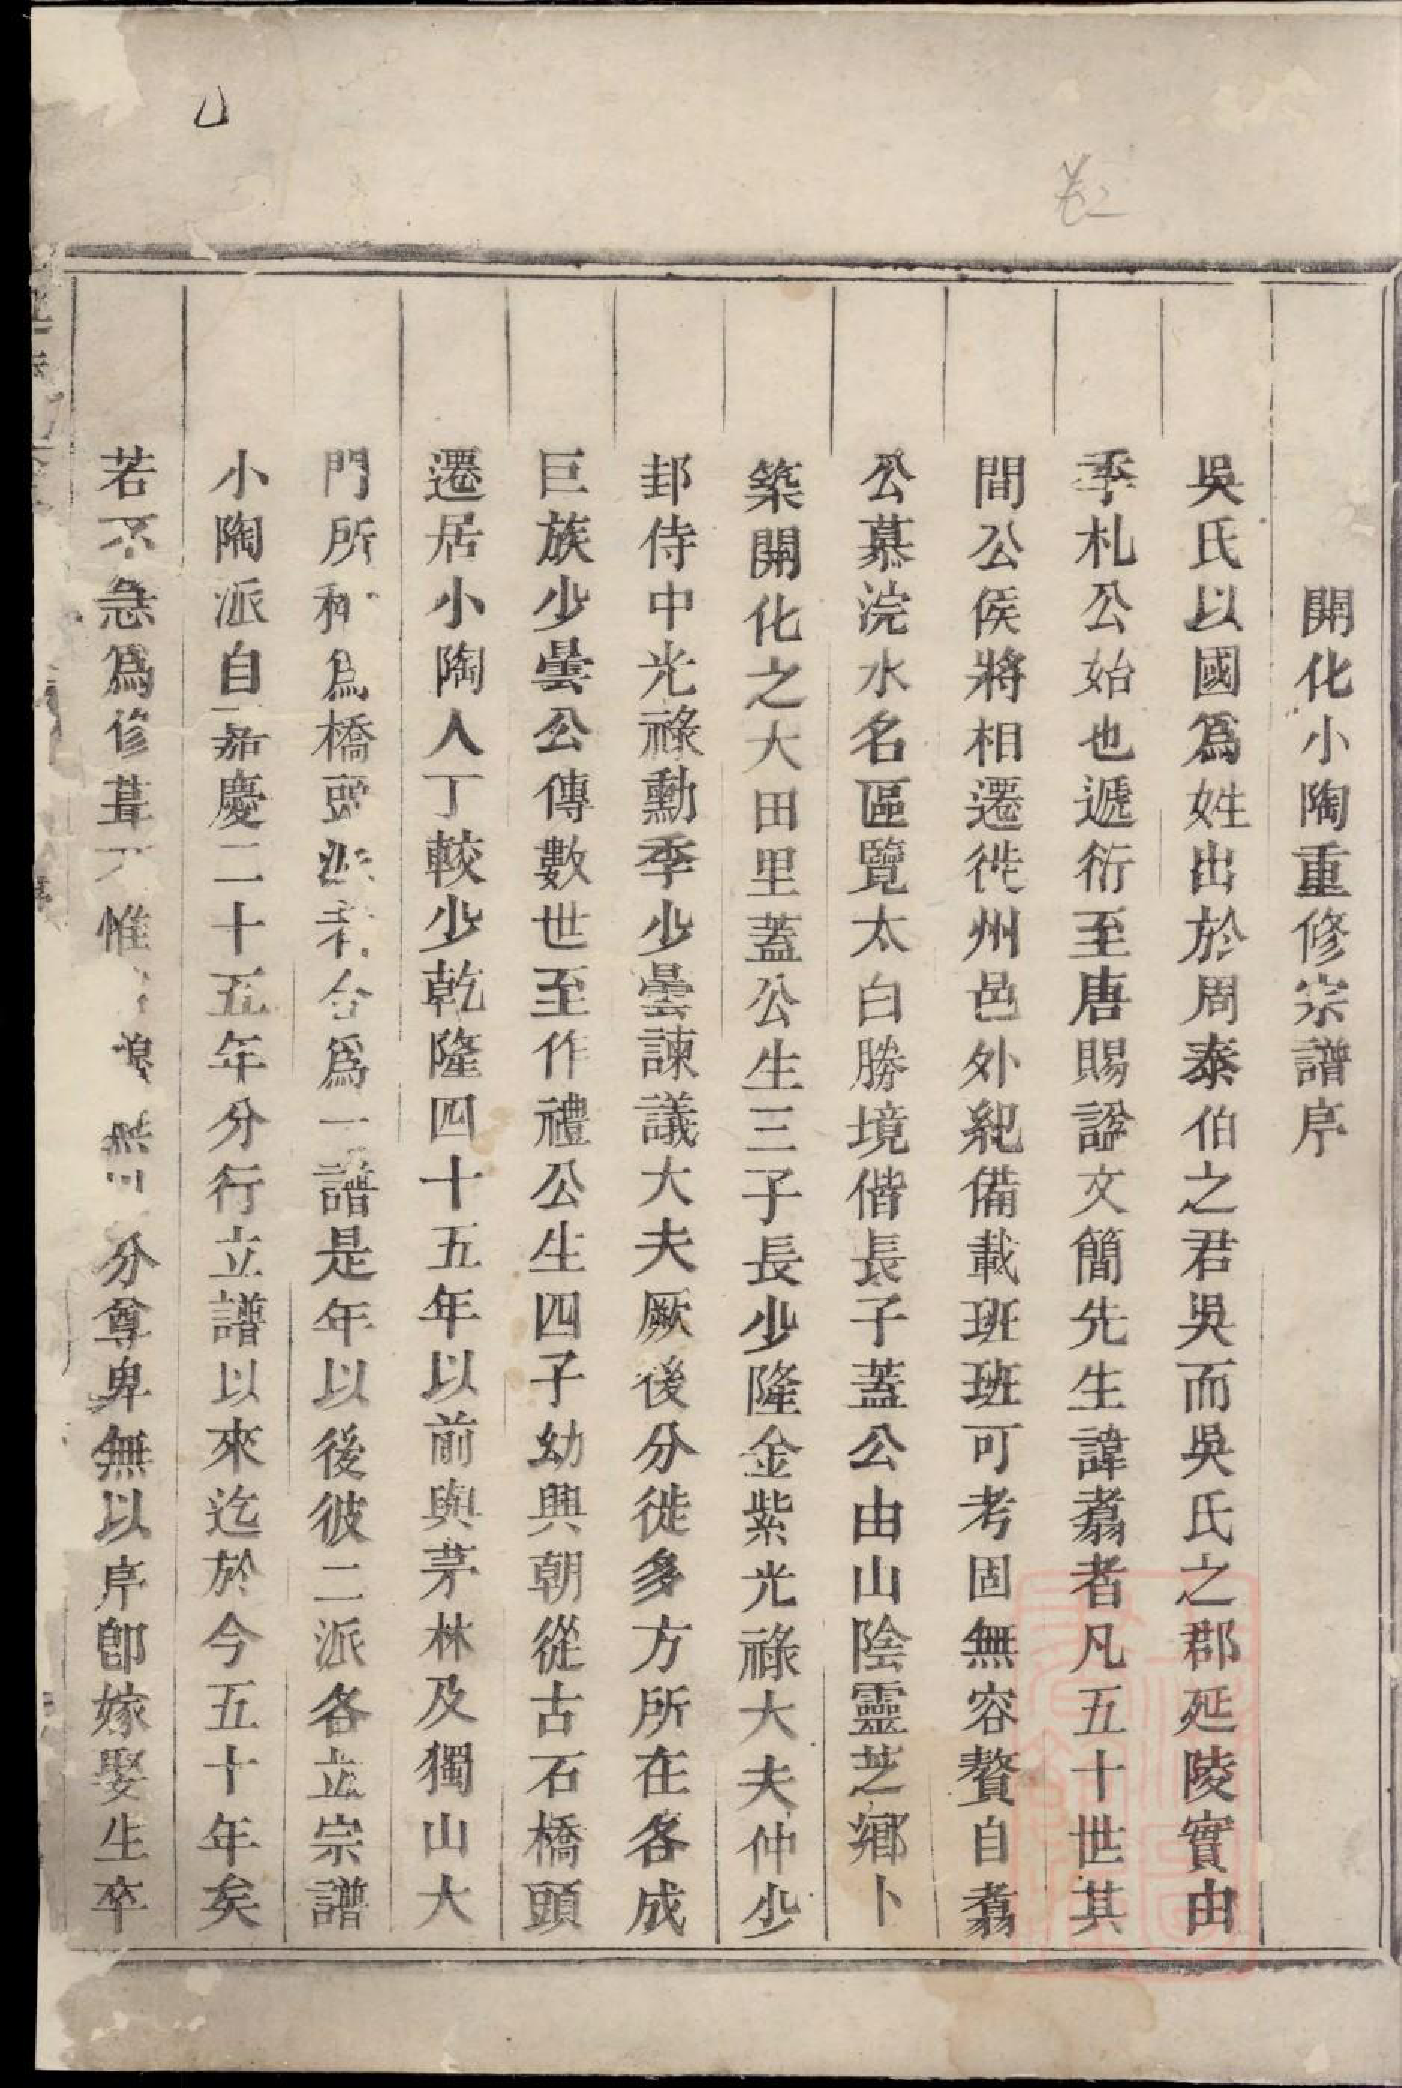 卷2
開化小陶重修宗譜序
吳氏以國爲姓出於周泰伯之君吳而吳氏之郡延陵實由
季札公始也遞衍至唐賜諡文簡先生諱翥者凡五十世其
間公侯將相遷徙州邑外紀備載班班可考固無容贅自翥
公慕浣水名區覽太白勝境偕長子蓋公由山陰靈芝鄉卜
築開化之大田里蓋公生三子長少隆金紫光祿大夫仲少
邽侍中光祿勳季少曇諫議大夫厥後分徙多方所在各成
巨族少曇公傳數世至作禮公生四子幼興朝從古石橋頭
遷居小陶人丁較少乾隆四十五年以前與茅林及獨山大
門所稱爲橋頭派者合爲一譜是年以後彼二派各立宗譜
小陶派自嘉慶二十五年分行立譜以來迄於今五十年矣
若不急爲修葺不惟分尊卑無以序卽嫁娶生卒